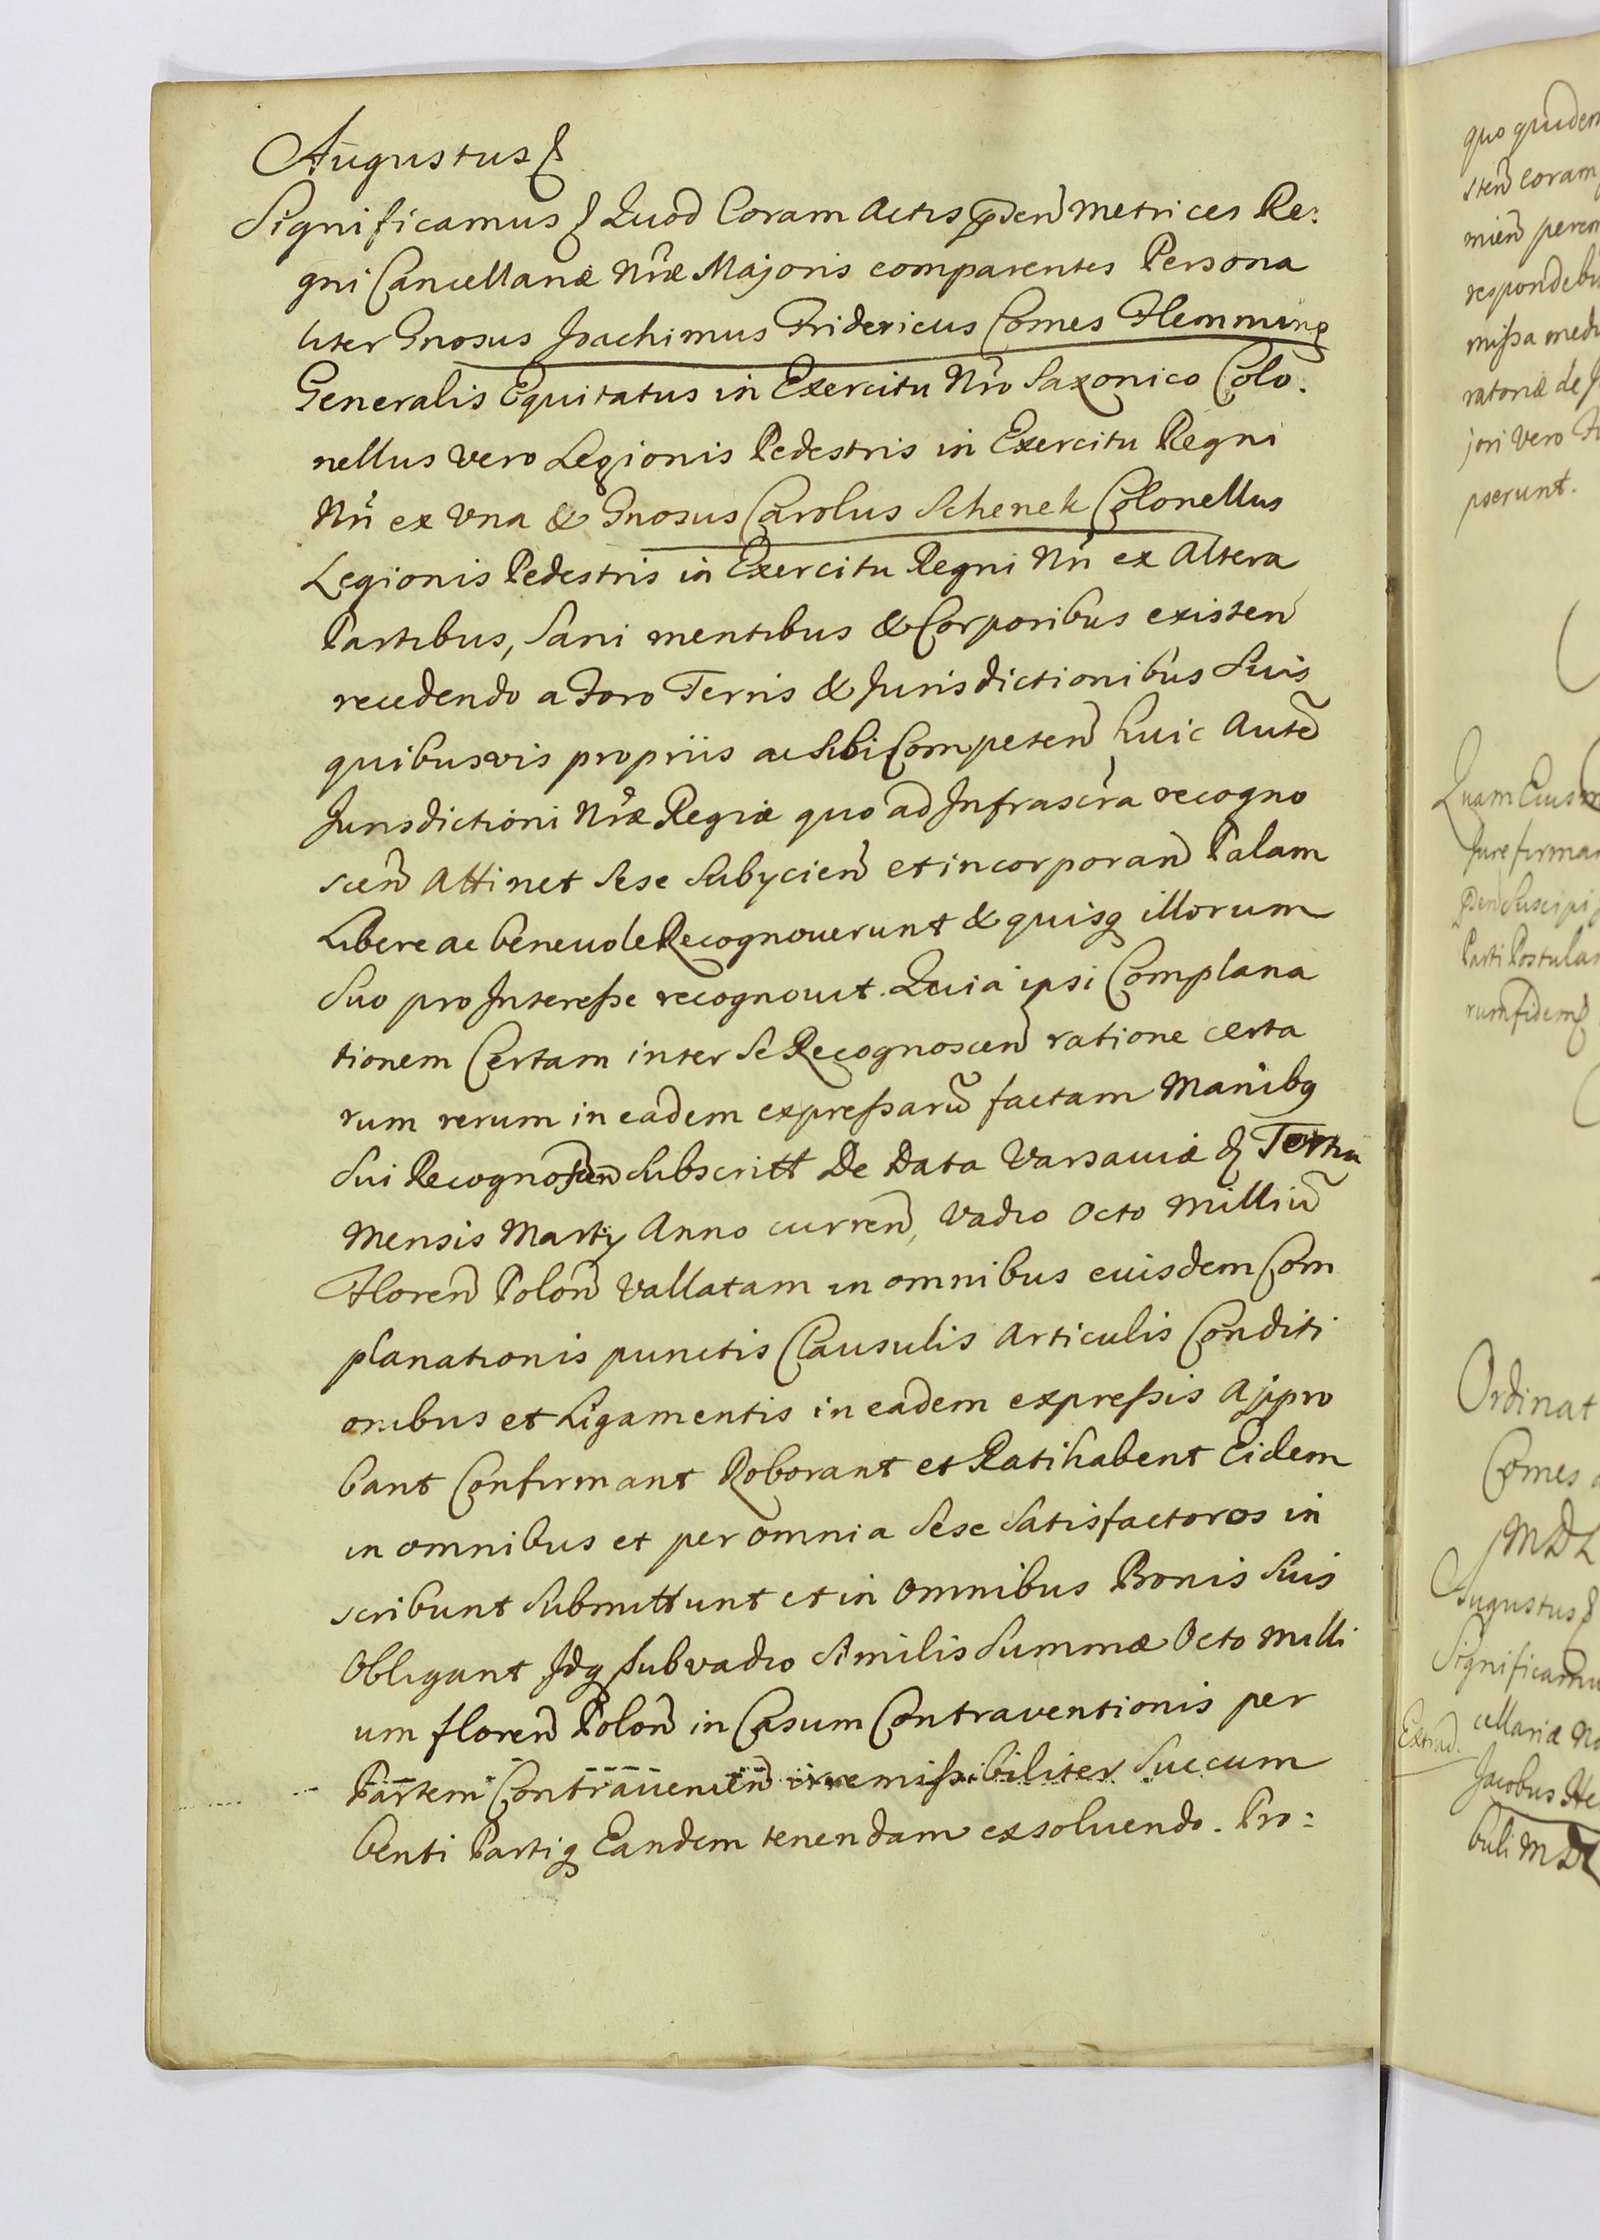 Augustus &
Significamus & Quod Coram Actis pñsen Metrices Re:
gni Cancellariæ Nræ Majoris comparentes Persona
liter Gnosus Joachimus Fridericus Comes Flemming
Generalis Equitatus in Exercitu Nro Saxonico Colo:
nellus vero Legionis Pedestris in Exercitu Regni
Nri ex Vna & Gnosus Carolus Schenek Colonellus
Legionis Pedestris in Exercitu Regni Nri ex Altera
Partibus, Sani mentibus & Corporibus existen
recedendo a Foro Terris & Jurisdictionibus Suis
quibusvis propriis ac sibi Competen huic Autē
Jurisdictioni Nræ Regiæ quo ad Infrascra recogno
scen Attinet Sese Subycien et incorporan Palam
Libere ac beneuole Recognouerunt & quisq illorum
Suo pro Interesse recognouit. Quia ipsi Complana
tionem Certam inter se Recognoscen ratione certa
rum rerum in eadem expressarū factam Manibq
Sui Recognoscen subscritt De Data Varsaviæ d Tertia
Mensis Marty Anno curren, Vadio Octo Milliū
Floren Polon Vallatam in omnibus euisdem Com
planationis punctis Clausulis Articulis Conditi
onibus et Ligamentis in eadem expressis Appro
bant Confirmant Roborant et Ratihabent Eidem
in omnibus et per omnia Sese Satisfactoros in
scribunt Submittunt et in Omnibus Bonis Suis
Obligant Idq sub vadio Similis Summæ Octo Milli
um floren Polon in Casum Contraventionis per
Partem Contrauenien irremissibiliter Succum
benti Partiq Eandem tenendam exsoluendo. Pro:
quo quidem
sten coram
mien perem
missa
ratoriæ de
jori vero
pserunt.
Quam
Jure
Suscipi
Parti
rum fidem &
Ordinat
Comes
MDL
Augustus &
Significamu
Extrad. cellariæ
Jacobus
buli MDL